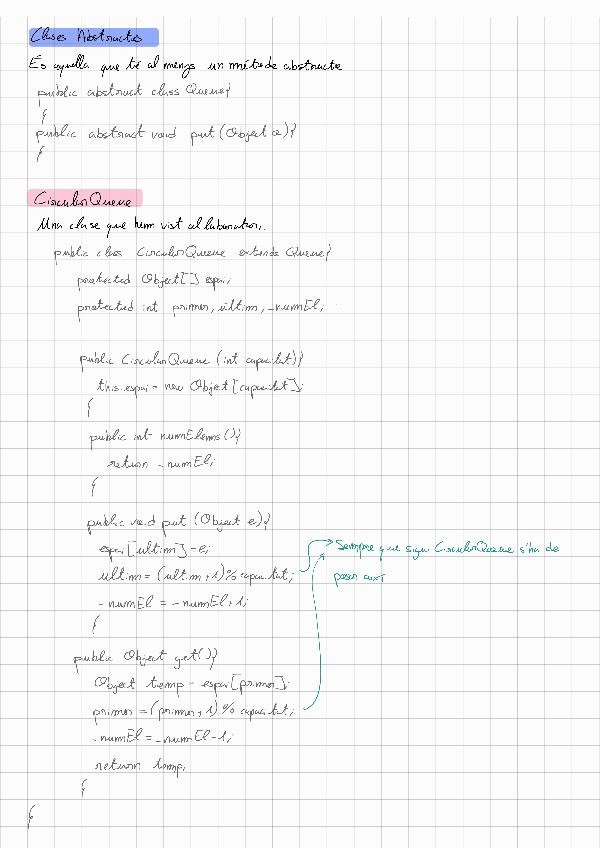 Clases Abstractes
Es aquella que té al menys un mètode abstracte
public abstract class Queue{
{
public abstract void put (Object e){
{
CircularQueue
Una clase que hem vist al laboratori.
public class CircularQueue extends Queue{
protected Object[] espai;
protected int primer, últim, _numEl;
public CircularQueue (int capacitat){
this.espai = new Object[capacitat];
{
public int numElems(){
return _numEl;
{
public void put (Object e){
espai[ultim] = e;
ultim = (ultim + 1) % capacitat;
_numEl = _numEl + 1;
{
Sempre que sigui CircularQueue s'ha de
posar així
public Object get(){
Object temp = espai[primer];
primer = (primer + 1) % capacitat;
_numEl = _numEl - 1;
return temp;
{
{